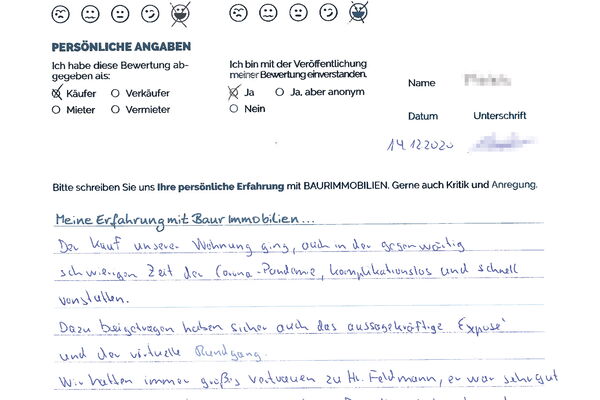 PERSÖNLICHE ANGABEN
Ich habe diese Bewertung ab-
gegeben als:
Käufer Verkäufer
Mieter Vermieter
Ich bin mit der Veröffentlichung
meiner Bewertung einverstanden.
Ja Ja, aber anonym
Nein
Name
Datum Unterschrift
14.12.2020
Bitte schreiben Sie uns Ihre persönliche Erfahrung mit BAURIMMOBILIEN. Gerne auch Kritik und Anregung.
Meine Erfahrung mit Baur Immobilien...
Der Kauf unserer Wohnung ging, auch in der gegenwärtig
schwierigen Zeit der Corona-Pandemie, komplikationslos und schnell
vonstatten.
Dazu beigetragen haben sicher auch das aussagekräftige Exposé
und der virtuelle Rundgang.
Wir hatten immer großes Vertrauen zu Hr. Feldmann, er war sehr gut